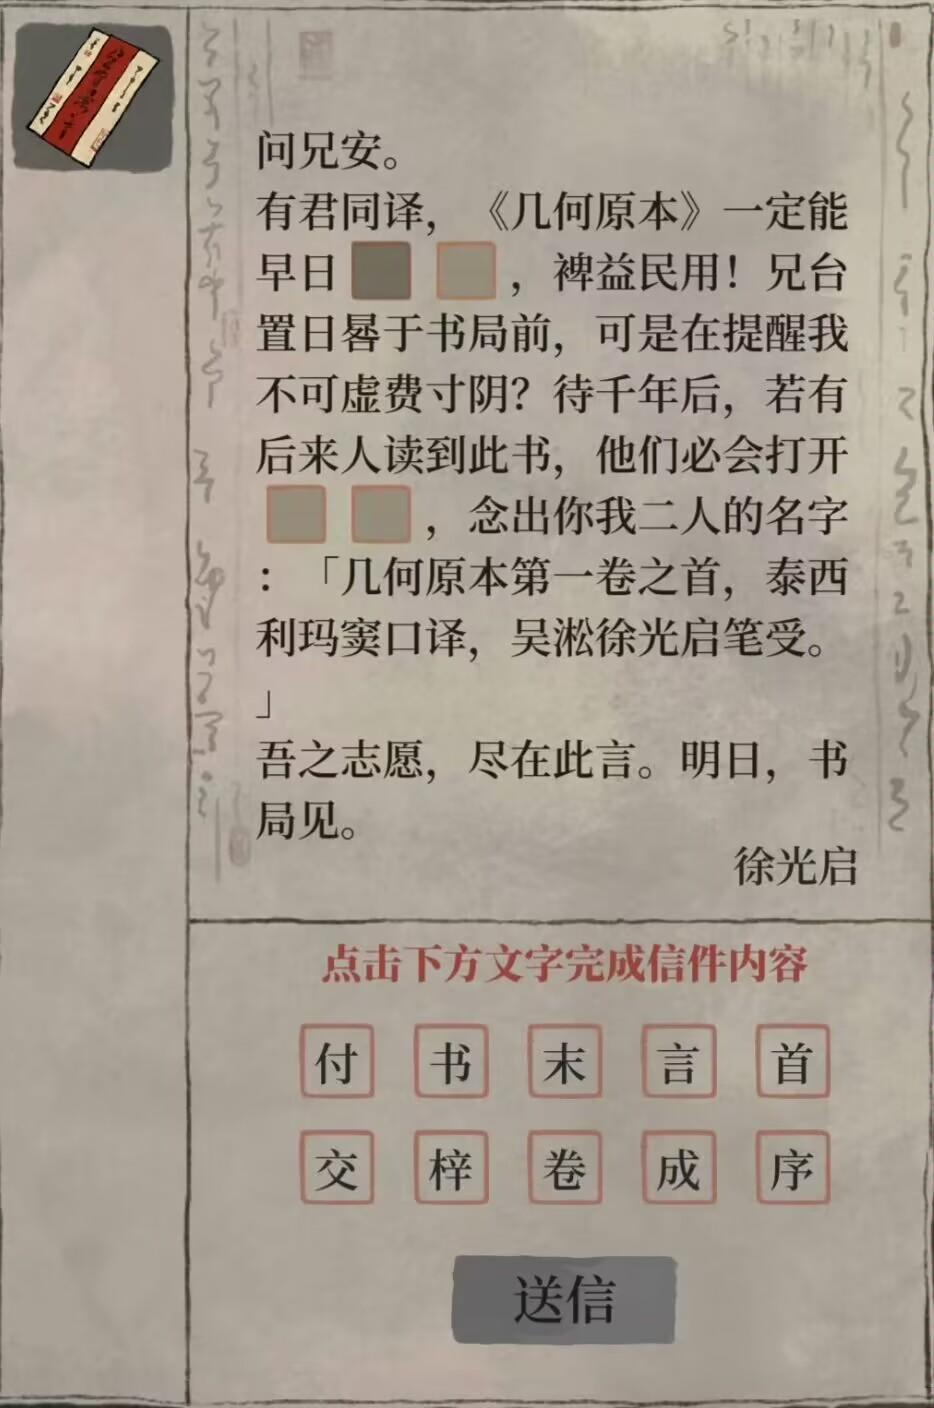 问兄安。
有君同译，《几何原本》一定能
早日，裨益民用！兄台
置日晷于书局前，可是在提醒我
不可虚费寸阴？待千年后，若有
后来人读到此书，他们必会打开
，念出你我二人的名字
：「几何原本第一卷之首，泰西
利玛窦口译，吴淞徐光启笔受。
」
吾之志愿，尽在此言。明日，书
局见。
徐光启
点击下方文字完成信件内容
付 书 末 言 首
交 梓 卷 成 序
送信